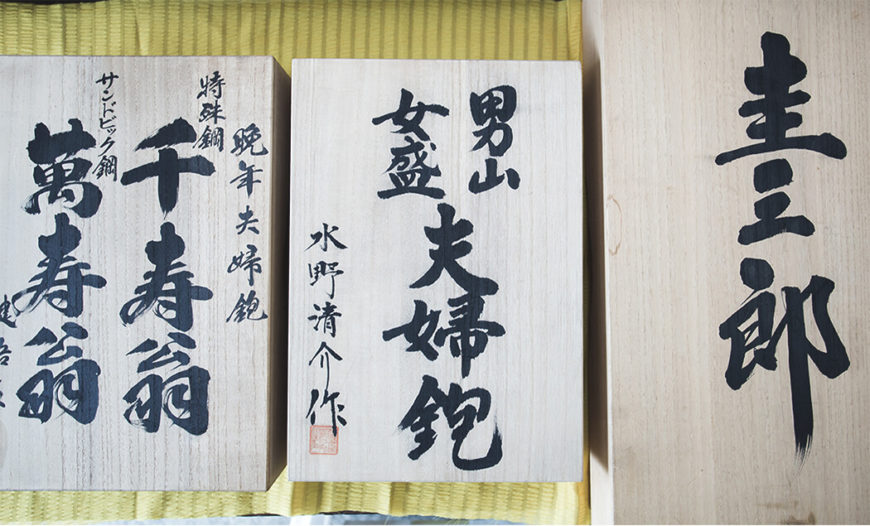 圭三郎
男山
女盛
夫婦鉋
水野清介作
晩年夫婦鉋
特殊鋼
千寿翁
サンドビック鋼
萬寿翁